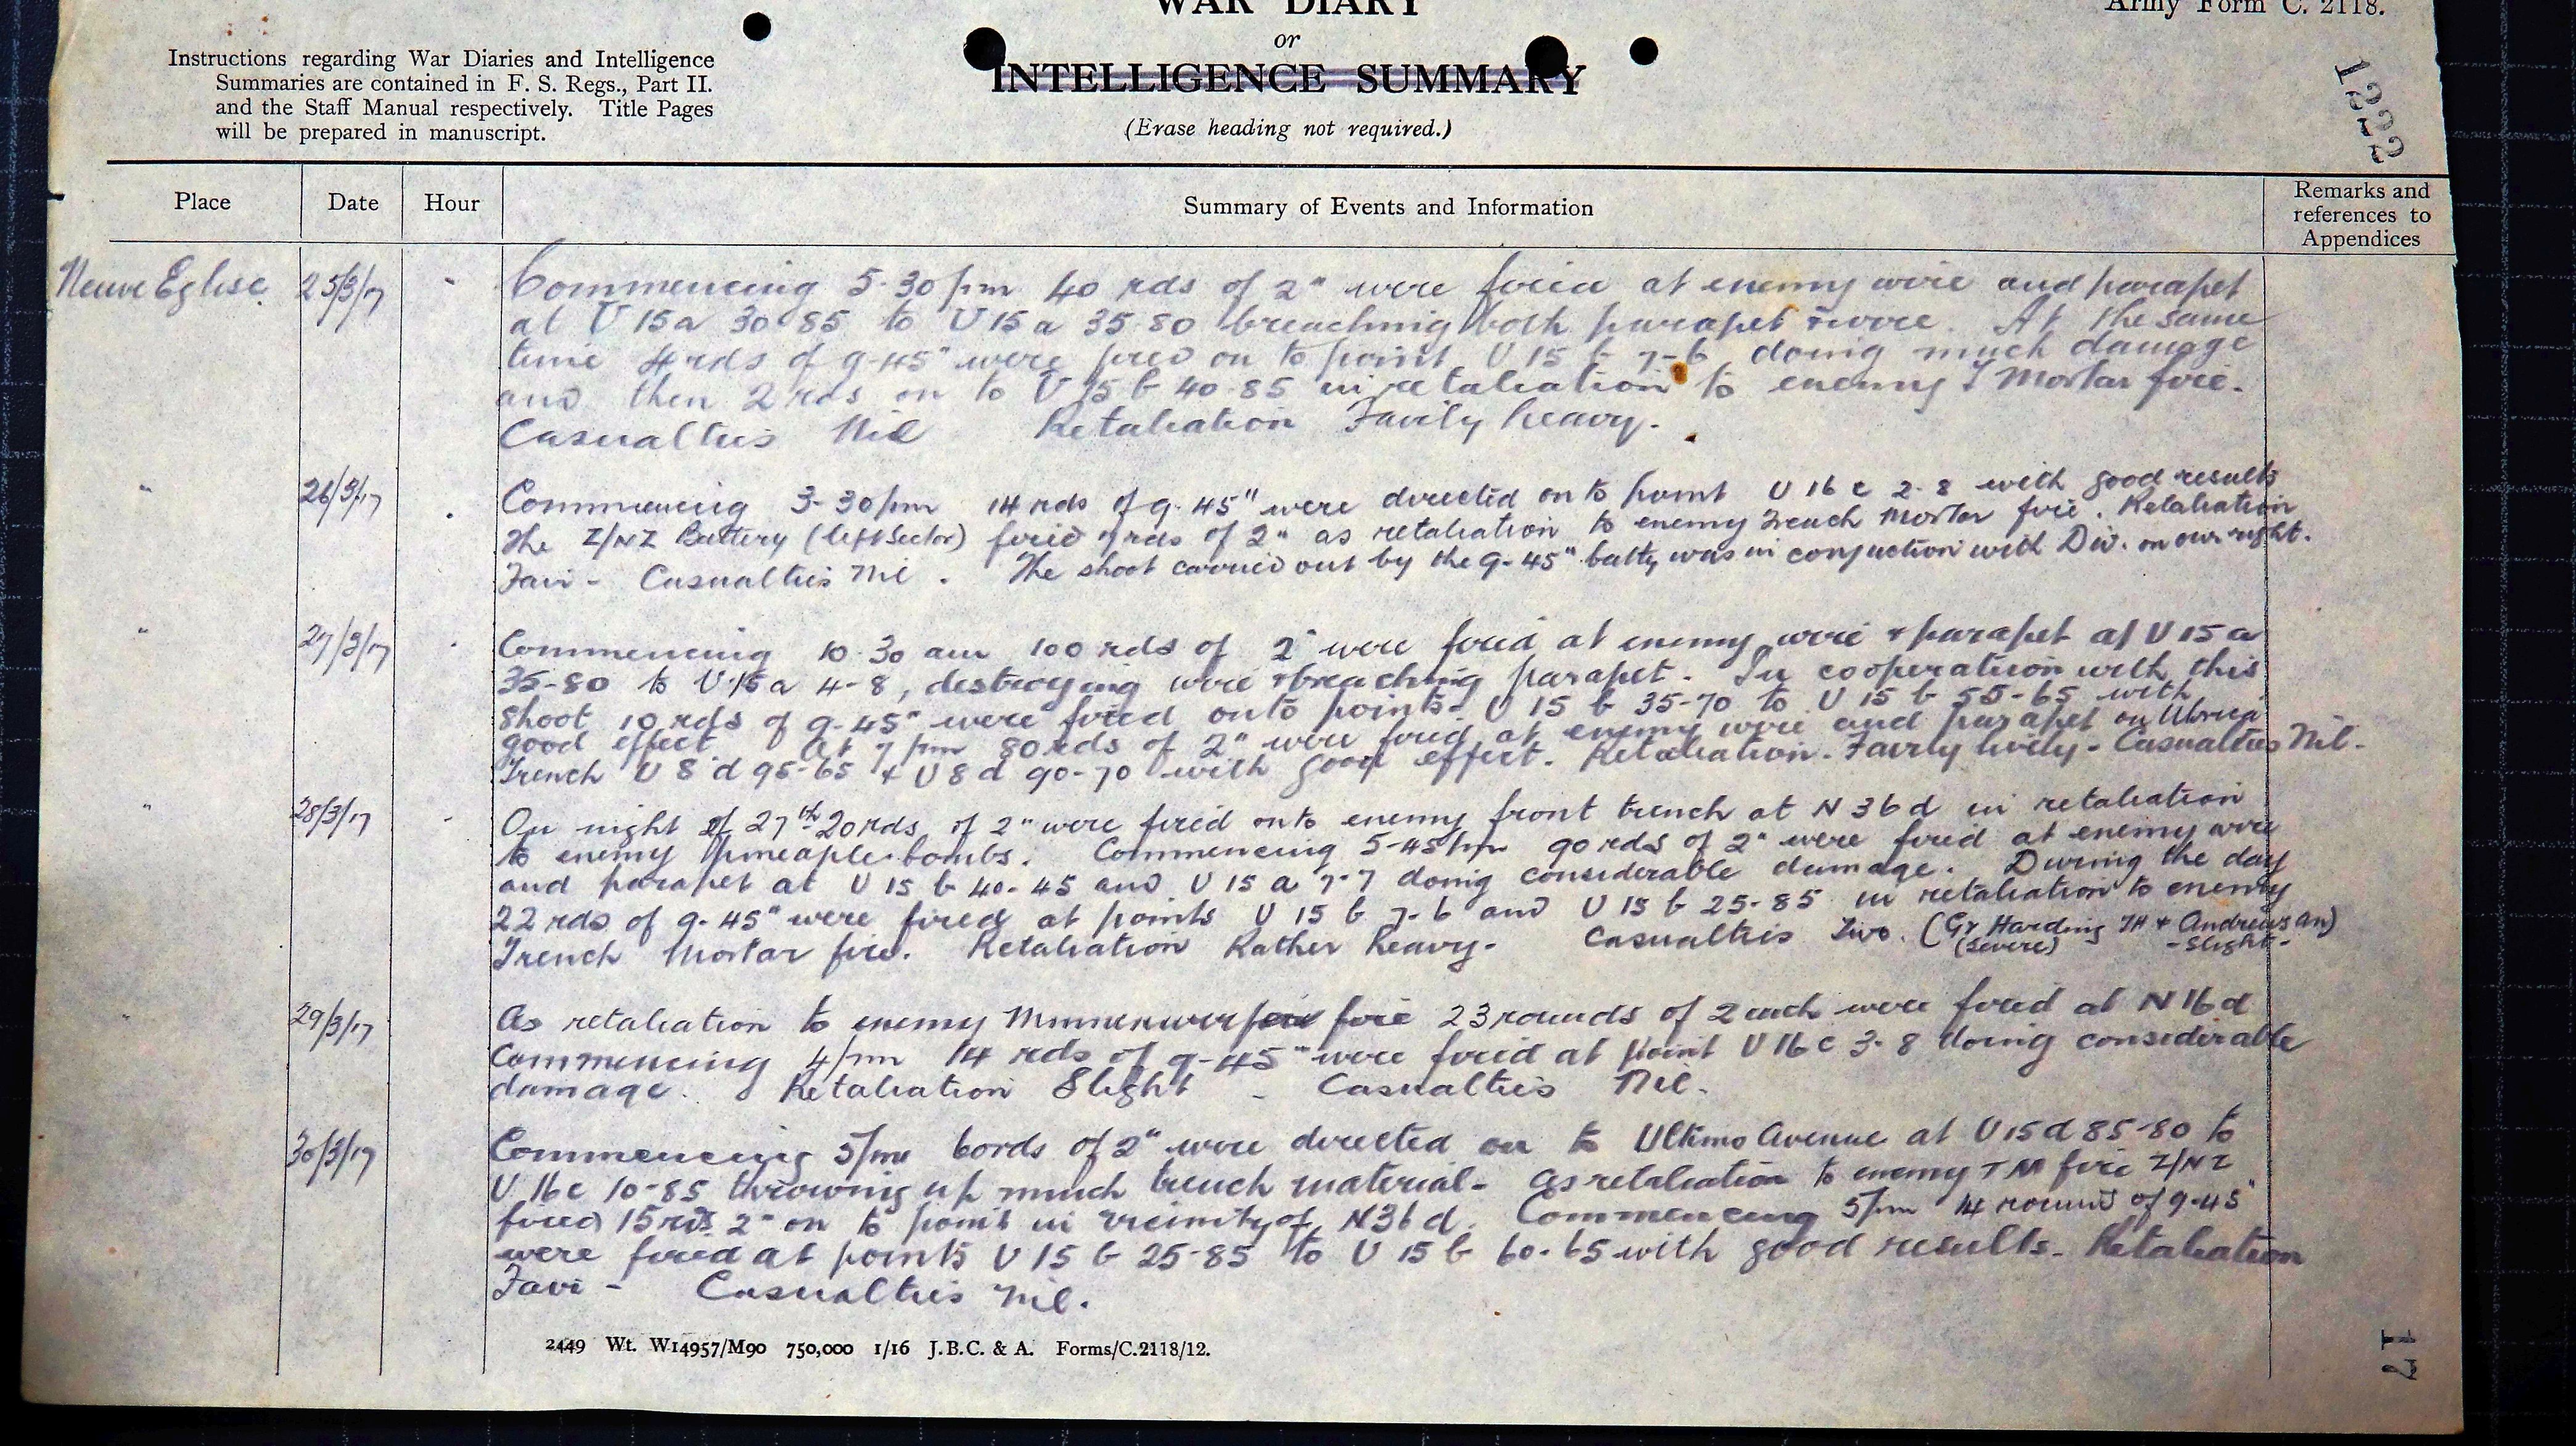 WAR DIARY
Army Form C. 2118.
or
INTELLIGENCE SUMMARY
(Erase heading not required.)
Instructions regarding War Diaries and Intelligence
Summaries are contained in F. S. Regs., Part II.
and the Staff Manual respectively. Title Pages
will be prepared in manuscript.
1222
Place Date Hour Summary of Events and Information Remarks and
references to
Appendices
Neuve Eglise 25/3/17 Commencing 5-30 pm 40 rds of 2" were fired at enemy wire and parapet
at U 15 a 30-85 to U 15 a 35-80 breaching both parapet & wire. At the same
time 4 rds of 9-45" were fired on to point U 15 b 7-6 doing much damage
and then 2 rds on to U 15 b 40-85 in retaliation to enemy T Mortar fire.
Casualties Nil Retaliation Fairly heavy.
" 26/3/17 Commencing 3-30 pm 14 rds of 9-45" were directed on to point U 16 c 2-8 with good results
The Z/NZ Battery (left Sector) fired 9 rds of 2" as retaliation to enemy Trench Mortar fire. Retaliation
Fair - Casualties Nil. The shoot carried out by the 9-45" batty was in conjuction with Div. on our right.
" 27/3/17 Commencing 10-30 am 100 rds of 2" were fired at enemy wire & parapet at U 15 a
35-80 to U 15 a 4-8, destroying wire & breaching parapet. In cooperation with this
shoot 10 rds of 9-45" were fired onto points U 15 b 35-70 to U 15 b 55-65 with
good effect. At 7 pm 80 rds of 2" were fired at enemy wire and parapet on
Trench U 8 d 95-65 & U 8 d 90-70 with good effect. Retaliation - Fairly lively - Casualties Nil.
" 28/3/17 On night of 27th 20 rds of 2" were fired onto enemy front trench at N 36 d in retaliation
to enemy pineaple bombs. Commencing 5-45 pm 90 rds of 2" were fired at enemy wire
and parapet at U 15 b 40-45 and U 15 a 7-7 doing considerable damage. During the day
22 rds of 9-45" were fired at points U 15 b 7-6 and U 15 b 25-85 in retaliation to enemy
Trench Mortar fire. Retaliation Rather heavy - Casualties Two. (Gr Harding JH & Andrews AN)
(Severe) - Slight -
" 29/3/17 As retaliation to enemy fire 23 rounds of 2 inch were fired at N 16 d
Commencing 4 pm 14 rds of 9-45" were fired at point U 16 c 3-8 doing considerable
damage. Retaliation Slight - Casualties Nil.
30/3/17 Commencing 5 pm 60 rds of 2" were directed on to Ultimo Avenue at U 15 d 85-80 to
U 16 c 10-85 throwing up much trench material - As retaliation to enemy TM fire Z/NZ
fired 15 rds 2" on to point in vicinity of N 36 d. Commencing 5 pm 14 rounds of 9-45"
were fired at points U 15 b 25-85 to U 15 b 60-65 with good results - Retaliation
Fair - Casualties Nil.
2449 Wt. W14957/M90 750,000 1/16 J.B.C. & A. Forms/C.2118/12.
17